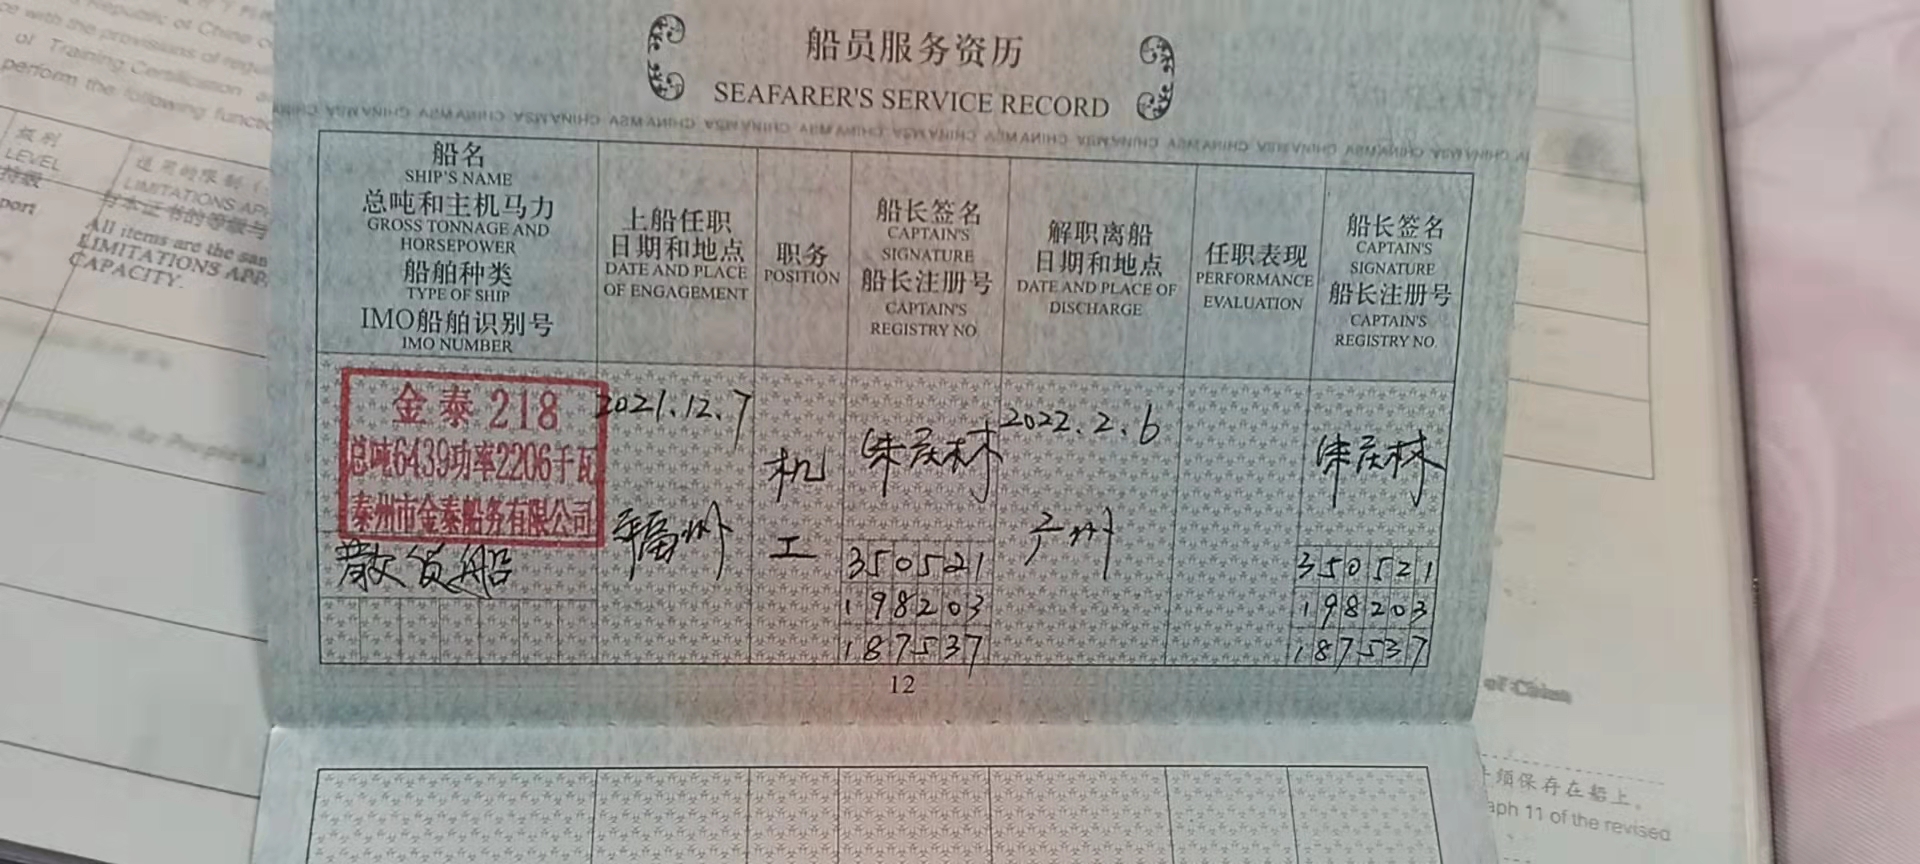 船员服务资历
SEAFARER'S SERVICE RECORD
船名
SHIP'S NAME
总吨和主机马力
GROSS TONNAGE AND
HORSEPOWER
船舶种类
TYPE OF SHIP
IMO船舶识别号
IMO NUMBER
上船任职
日期和地点
DATE AND PLACE
OF ENGAGEMENT
职务
POSITION
船长签名
CAPTAIN'S
SIGNATURE
船长注册号
CAPTAIN'S
REGISTRY NO
解职离船
日期和地点
DATE AND PLACE OF
DISCHARGE
任职表现
PERFORMANCE
EVALUATION
船长签名
CAPTAIN'S
SIGNATURE
船长注册号
CAPTAIN'S
REGISTRY NO.
金泰218
总吨6439功率2206千瓦
泰州市金泰船务有限公司
散货船
2021.12.7
福州
机
工
朱庆林
350521
198203
187537
2022.2.6
广州
朱庆林
350521
198203
187537
12
级别
LEVEL
适用的限制
LIMITATIONS AP
与本证书的等级与
All items are the sam
LIMITATIONS APP
CAPACITY.
Republic of China
with the provisions of regu
of Training Certification
perform the following func
port
of China
须保存在船上。
aph 11 of the revised